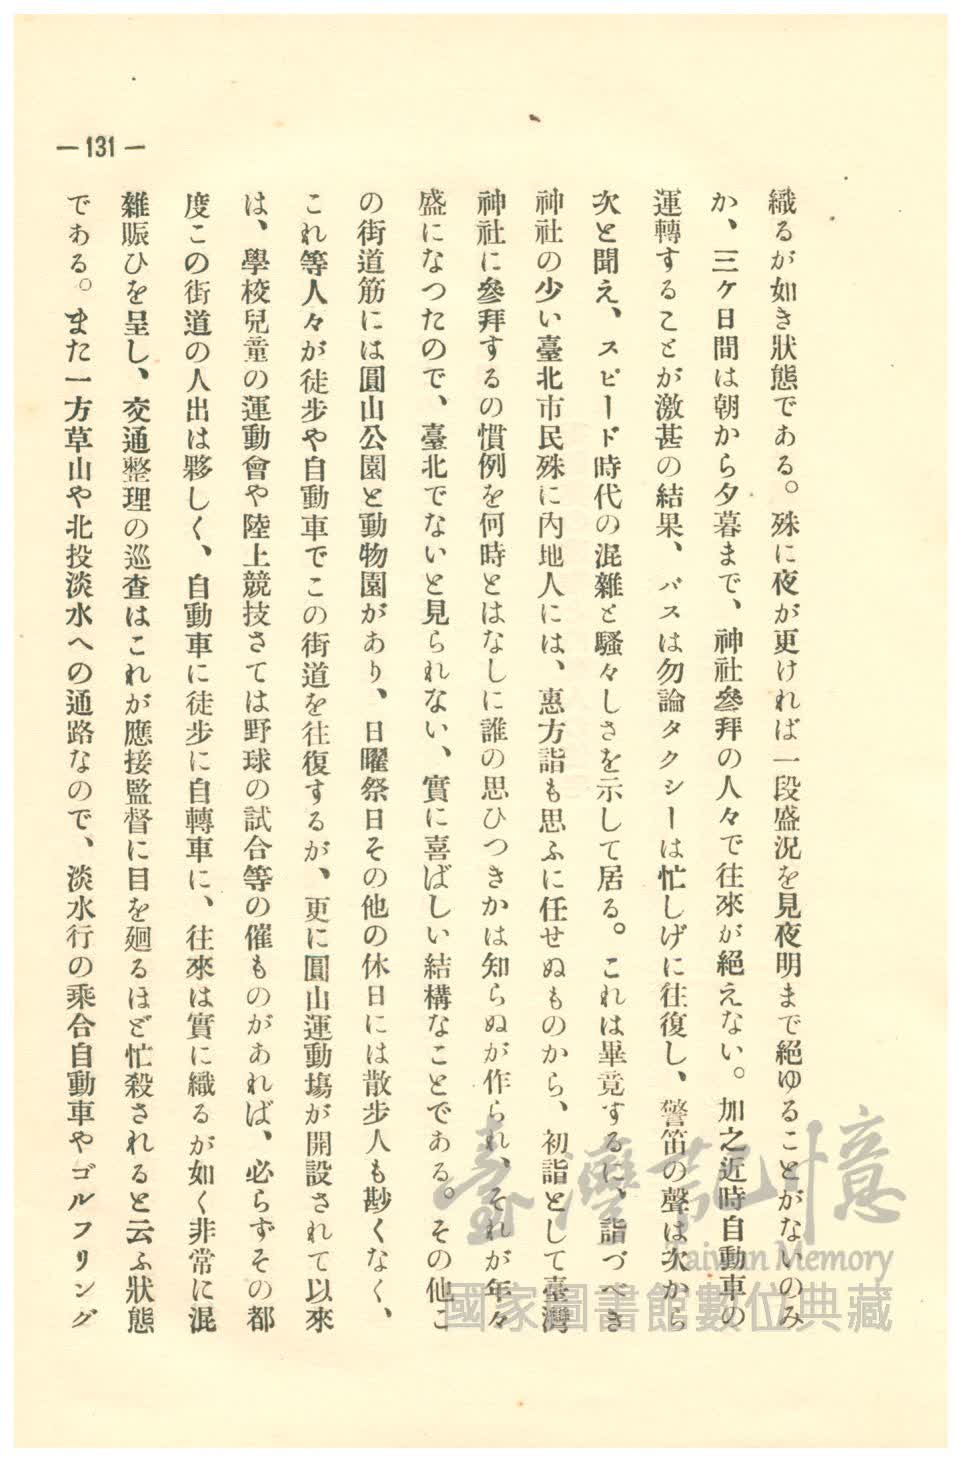 織るが如き狀態である。殊に夜が更ければ一段盛況を見夜明まで絕ゆることがないのみ
か、三ケ日間は朝から夕暮まで、神社參拜の人々で往來が絕えない。加之近時自動車の
運轉することが激甚の結果、バスは勿論タクシーは忙しげに往復し、警笛の聲は次から
次と聞え、スピード時代の混雜と騷々しさを示して居る。これは畢竟するに、詣づべき
神社の少い臺北市民殊に內地人には、惠方詣も思ふに任せぬものから、初詣として臺灣
神社に參拜するの慣例を何時とはなしに誰の思ひつきかは知らぬが作られ、それが年々
盛になつたので、臺北でないと見られない、實に喜ばしい結構なことである。その他こ
の街道筋には圓山公園と動物園があり、日曜祭日その他の休日には散步人も尠くなく、
これ等人々が徒步や自動車でこの街道を往復するが、更に圓山運動場が開設されて以來
は、學校兒童の運動會や陸上競技さては野球の試合等の催ものがあれば、必らずその都
度この街道の人出は夥しく、自動車に徒步に自轉車に、往來は實に織るが如く非常に混
雜賑ひを呈し、交通整理の巡査はこれが應接監督に目を廻るほど忙殺されると云ふ狀態
である。また一方草山や北投淡水への通路なので、淡水行の乘合自動車やゴルフリング
— 131 —
臺灣記憶
Taiwan Memory
國家圖書館數位典藏